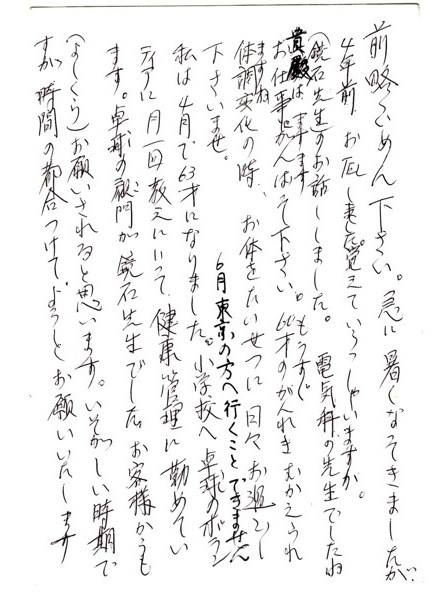 前略ごめん下さい。急に暑くなってきましたが、
4年前、お伝えしました。覚えていらっしゃいますか。
(鏡石先生)のお話ししました。電気科の先生でしたね
貴殿はますます
お仕事にがんばって下さい。もうすぐ60才のがんれきむかえられ
ますね
体調変化の時、お体をたいせつに日々お過ごし
下さいませ。
6月東京の方へ行くことできません
私は4月で63才になりました。小学校へ卓球のボラン
ティアに月一回教えにいって、健康管理に勤めてい
ます。卓球の顧門が鏡石先生でした。お客様からも
(よしくら)お願いされると思います。いそがしい時期で
すが時間の都合つけてどうぞお願いいたします